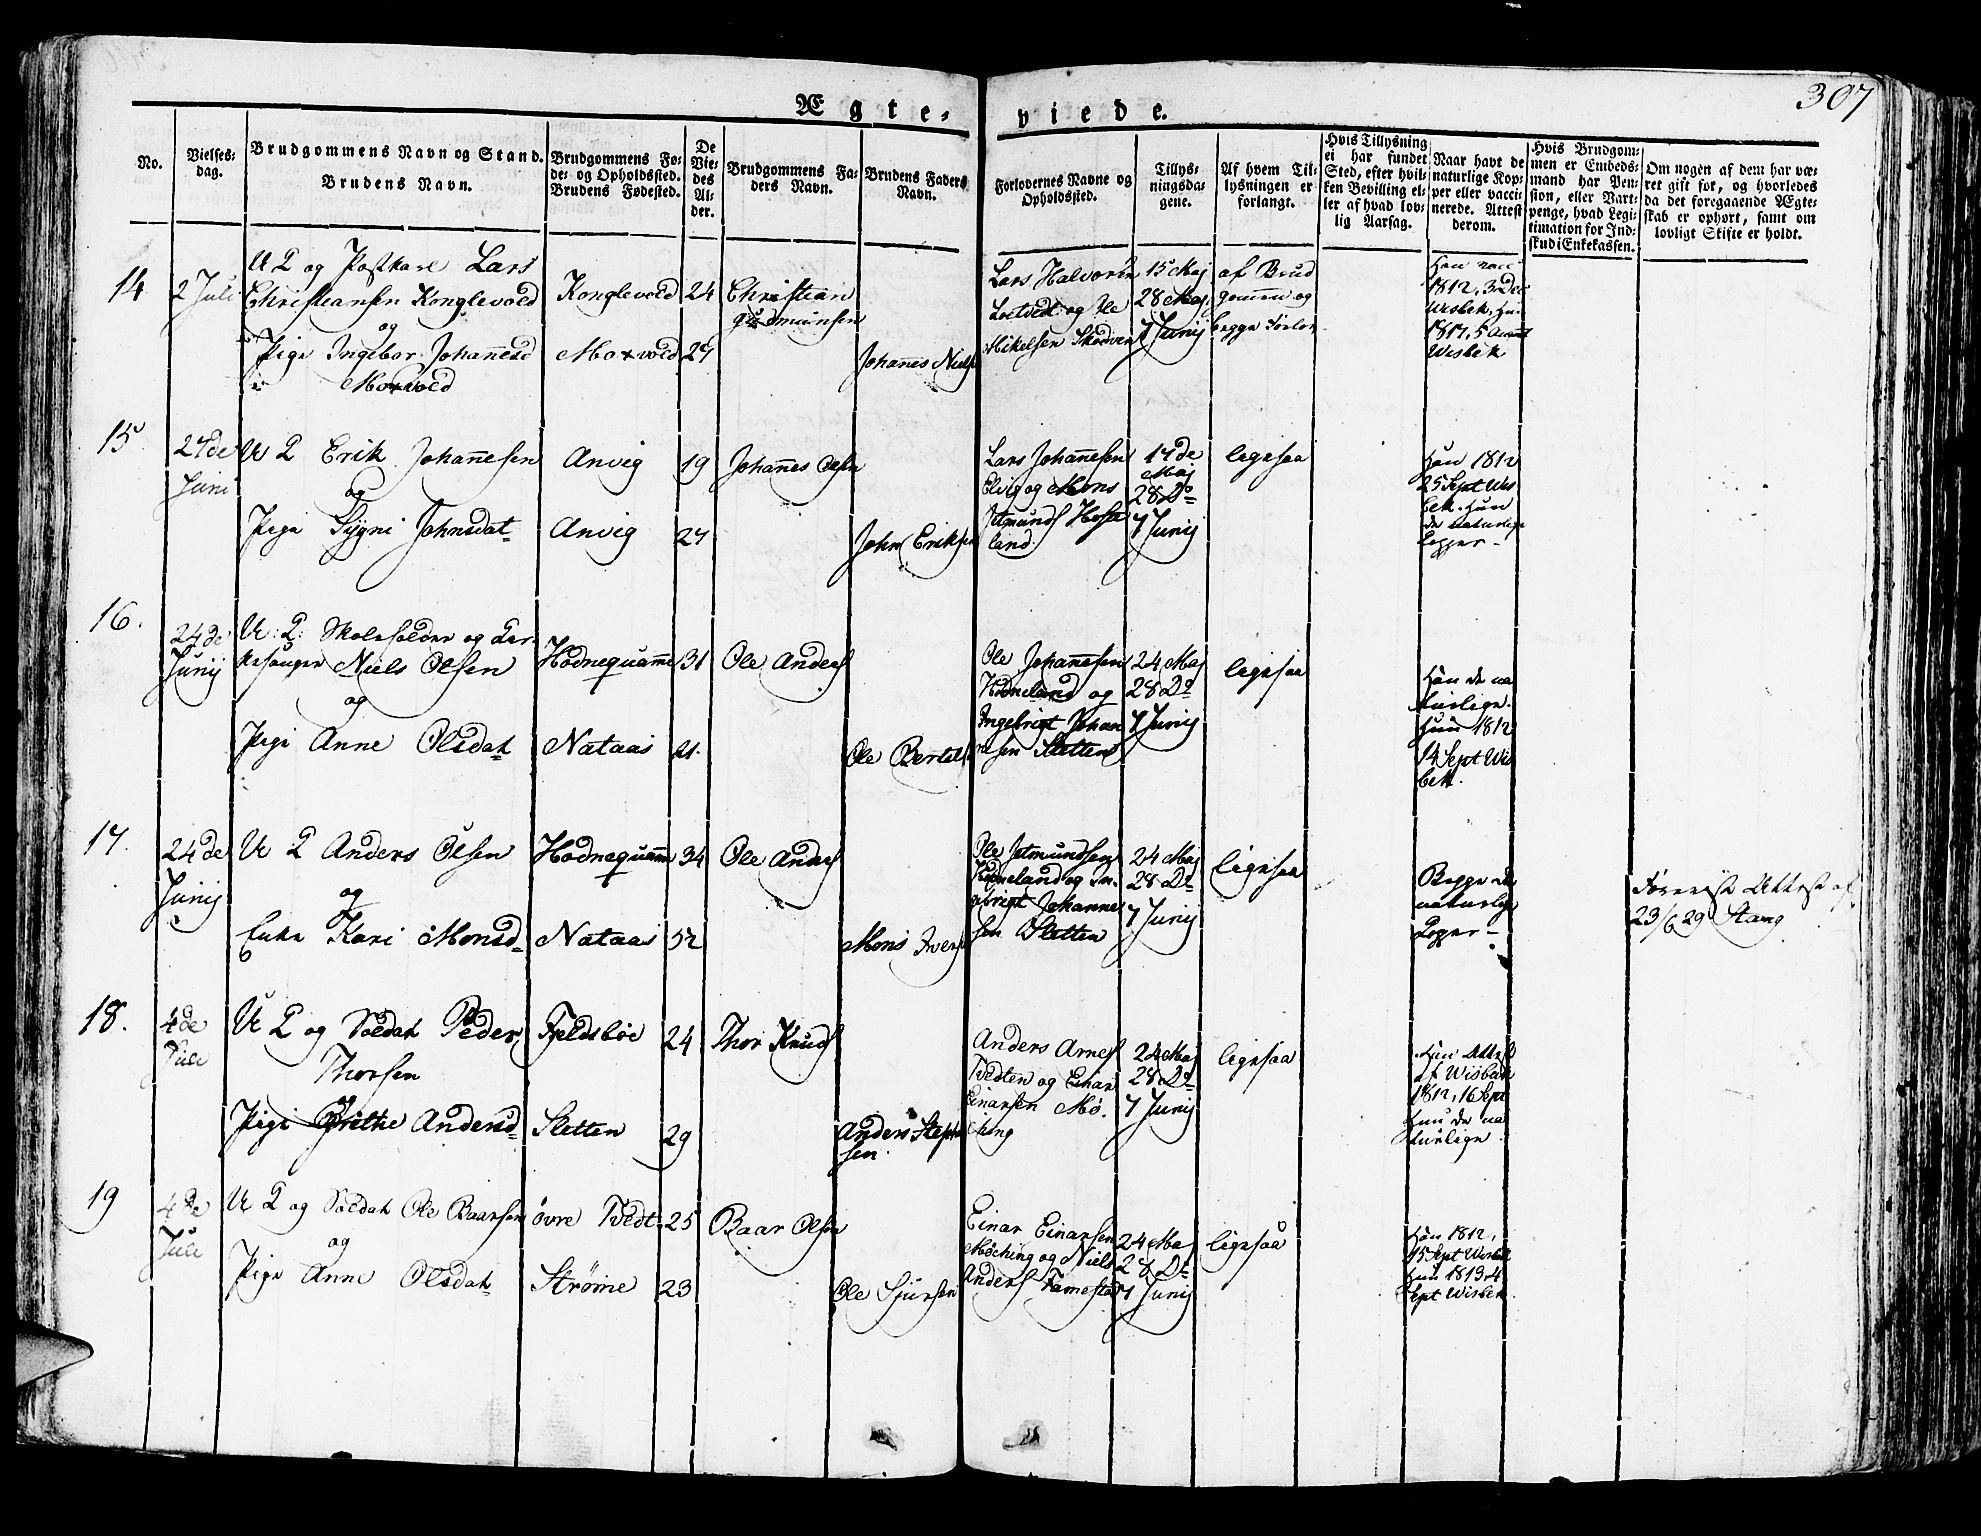 307
Ægte-viede.
No.
Vielses-
dag.
Brudgommens Navn og Stand.
Brudens Navn.
Brudgommens Fø-
de- og Opholdssted.
Brudens Fødested.
De
Vie-
des
Al-
der.
Brudgommens Fa-
ders Navn.
Brudens Faders
Navn.
Forlovernes Navne og
Opholdssted.
Tillys-
ningsda-
gene.
Af hvem Til-
lysningen er
forlangt.
Hvis Tillysning
ei har fundet
Sted, efter hvil-
ken Bevilling el-
ler af hvad lov-
lig Aarsag.
Naar havt de
naturlige Kop-
per eller vacci-
nerede. Attest
derom.
Hvis Brudgom-
men er Embeds-
mand har Pen-
sion, eller Vart-
penge, hvad Legi-
timation for Ind-
skud i Enkekassen.
Om nogen af dem har væ-
ret gift før, og hvorledes
da det foregaaende Ægte-
skab er ophørt, samt om
lovligt Skifte er holdt.
14
2 Juli
U L og Postkarl Lars
Christiansen Konglevold
og
Pige Ingebor Johannesd
Moxvold
Konglevold
Moxvold
24
27
Christian
Gudmunsen
Johannes Niels
Lars Halvorsen
Loetvedt og Ole
Mikelsen Skodven
15 Maj
28 Maj
7 Junij
af Brud
gommen og
begge Forlov
Han vacc
1812, 3 Dec
Wisbek, hun
1817, 5 August
Wisbek
15
24de
Juni
U L Erik Johannesen
og
Pige Sygni Johnsdat
Anvig
Anvig
19
27
Johannes Olsen
John Eriksen
Lars Johannesen
Elvig og Mons
Jetmunds Hosa
land.
17de
Maj
28 Do
7 Junij
ligesaa
Han 1812
25 Sept Wis
bek. Hun
de naturlige
Kopper
16.
24de
Junij
U: L: Skoleholder og Kir-
kesanger Niels Olsen
og
Pige Anne Olsdat
Hodnequamme
Nataas
31
21.
Ole Anders
Ole Bertels
Ole Johannesen
Hodneland og
Ingebrigt Johan
nesen Sletten
24 Maj
28 Do
7 Junij
ligesaa
Han de na
turlige.
Hun 1812
14 Sept Wis
bek.
17.
24de
Junij
U L Anders Olsen
og
Enke Kari Monsd
Hodnequamm
Nataas
34
52
Ole Anders
Mons Ivers
Ole Jetmundsen
Hodneland og In-
gebrigt Johanne
sen Sletten
24 Maj
28 Do
7 Junij
ligesaa
Begge de
naturlige
Kopper
Forevist Attest af
23/6 29 Stang
18.
4de
Juli
U L og Soldat Peder
Thorsen
og
Pige Brithe Andersd
Fjeldsbøe
Sletten
24
29
Thor Knuds
Anders Steph
sen.
Anders Arnes
Tvedten og Einar
Einarsen Mø-
ching
24 Maj
28 Do
7 Junij
ligesaa
Han Attest
af Wisbek
1812, 16 Sept
Hun de na
turlige
19
4de
Juli
U L og Soldat Ole Baarsen
og
Pige Anne Olsdat
øvre Tvedt
Strømme
25
23
Baar Olsen
Ole Sjursen
Einar Einarsen
Møching og Niels
Anders Tømestad
24 Maj
28 Do
7 Junij
ligesaa
Han 1812,
15 Sept Wisbek
Hun 1813, 4
Sept Wisbek